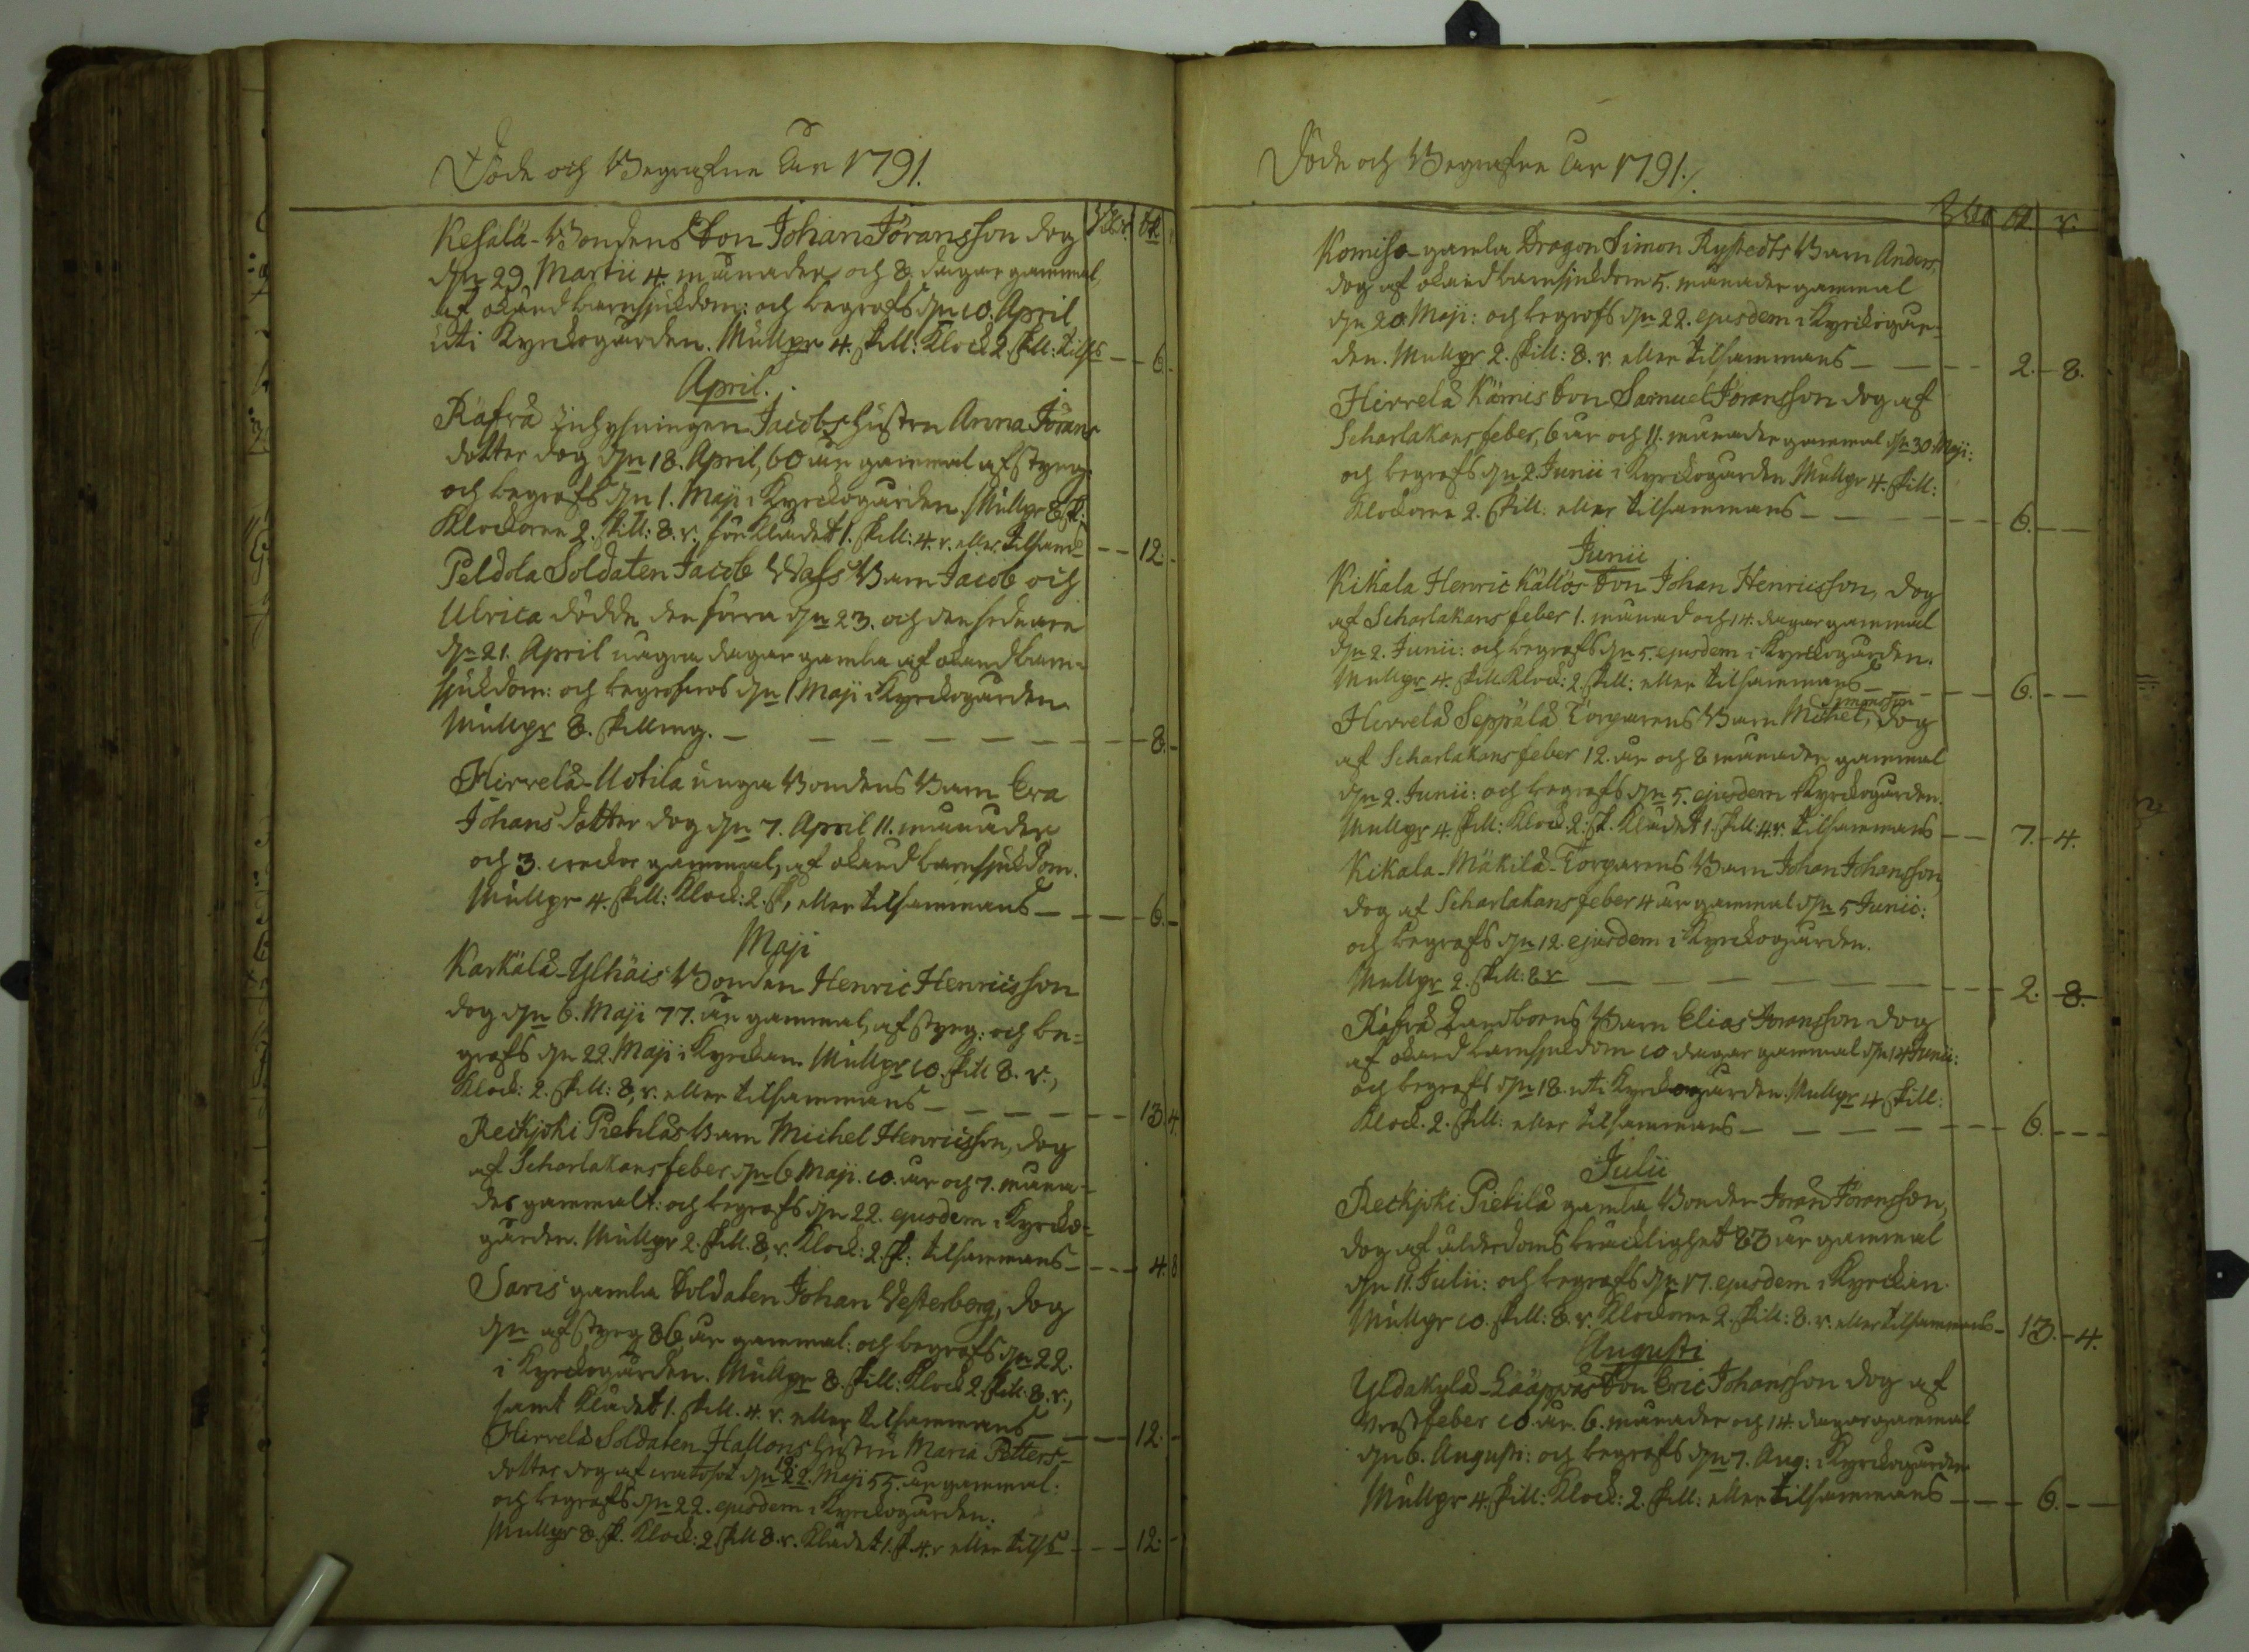 Döde och Begrafne År 1791.
Rdr. sk
Kesälä-Bondens Son Johan Jöransson dog
den 29 Martii 4. månader och 8. dagar gammal,
af okänd barnsjukdom: och begrofs den 10. April
uti Kyrckogården. Mullpr 4. skill: Klock 2. skill: tilhs — 6.
April.
Räfvå Inhysningen Jacobs hustru Anna Jörans
dotter dog den 18. April, 60 år gammal af styng
och begrofs den 1. Maji i Kyrckogården. Mullpr 8 sk:
Klockaren 2. skill: 8. r. för Klädet 1. skill: 4. r. eller tilsams — 12.
Peldola Soldaten Jacob Barn Jacob och
Ulrica dödde den förra den 23. och den sednare
den 21. April några dagar gamla af okänd barn-
sjukdom: och begrofvos den 1 Maji i Kyrckogården
Mullpr 8. skilling. — 8.
Hirvelä-Uotila unga Bondens Barn Eva
Johans dotter dog den 7. April 11. månader
och 3. veckor gammal, af okänd barnsjukdom.
Mullpr 4. skill: Klock: 2. sk, eller tilsammans — 6.
Maji
Karkälä-Ylhäis Bonden Henric Henricsson
dog den 6. Maji 77. år gammal, af styng: och be-
grofs den 22. Maji i Kyrckan Mullpr 10. skill 8. r.,
Klock: 2. skill: 8, r. eller tilsammans — 13. 4.
Reckjoki Pietiläs Barn Michel Henricsson, dog
af Scharlakansfeber den 6 Maji. 10. år och 7. måna-
der gammalt: och begrofs den 22. ejusdem i Kyrcko-
gården. Mullpr 2. skill. 8, r. Klock: 2. sk: tilsammans — 4. 8
Saris gamla Soldaten Johan Westerberg, dog
den af styng 86 år gammal: och begrofs den 22.
i Kyrckogården. Mullpr 8. skill: Klock 2 skill: 8. r.,
samt Klädet 1. skill. 4. r. eller tilsammans — 12.
Hirvelä Soldaten Hallons hustru Maria Petters-
dotter dog af den 22. Maji 55. år gammal:
och begrofs den 22. ejusdem i Kyrckogården.
Mullpr 8. sk. Klock: 2. skill 8. r. Klädet 1. sk. 4. r eller tilhs — 12.
Döde och Begrafne År 1791.
sk. r.
Komiso-gamla Dragon Simon Rystedts Barn Anders,
dog af okänd barnsjukdom 5. månader gammal
den 20. Maji: och begrofs den 22. ejusdem i Kyrckogår-
den. Mullpr 2. skill: 8. r. eller tilsammans — 2. 8.
Hirvelä Kämis Son Samuel Jöransson dog af
Scharlakansfeber, 6 år och 11. månader gammal den 30 Maji:
och begrofs den 2. Junii i Kyrckogården Mullpr 4. skill:
Klockaren 2. skill: eller tilsammans — 6.
Junii
Kikala Henric Källos Son Johan Henricsson, dog
af Scharlakansfeber 1. månad och 14. dagar gammal
den 2. Junii: och begrofs den 5. ejusdem i Kyrckogården.
Mullpr 4. skill Klock: 2. skill: eller tilsammans — 6.
Simonsson
Hirvelä Seppälä Torparens Barn Michel, dog
af Scharlakansfeber 12. år och 8 månader gammal
den 2. Junii: och begrofs den 5. ejusdem i Kyrckogården.
Mullpr 4. skill: Klock. 2. sk. Klädet 1. skill: 4. r. tilsammans — 7. 4.
Kikala-Mäkilä-Torparens Barn Johan Johansson,
dog af Scharlakansfeber 4 år gammal den 5 Junii:
och begrofs den 12. ejusdem i Kyrckogården.
Mullpr 2. skill: 8 r — 2. 8.
Räfvå Landbons Barn Elias Jöransson dog
af okänd barnsjukdom 10 dagar gammal den 14 Junii:
och begrofs den 18. uti Kyrckogården. Mullpr 4 skill:
Klock. 2. skill: eller tilsammans — 6.
Julii
Reckjoki Pietilä gamla Bonden Jöran Jöransson,
dog af ålderdoms bräcklighet 83 år gammal
den 11. Julii: och begrofs den 17. ejusdem i Kyrckan.
Mullpr 10. skill: 8. r. Klockaren 2. skill: 8. r. eller tilsammans — 13. 4.
Augusti
Yldakylä-Lääppäs Son Eric Johansson dog af
feber 10. år. 6. månader och 14. dagar gammal
den 6. Augusti: och begrofs den 7. Aug: i Kyrckogården
Mullpr 4. skill: Klock: 2. skill: eller tilsammans — 6.